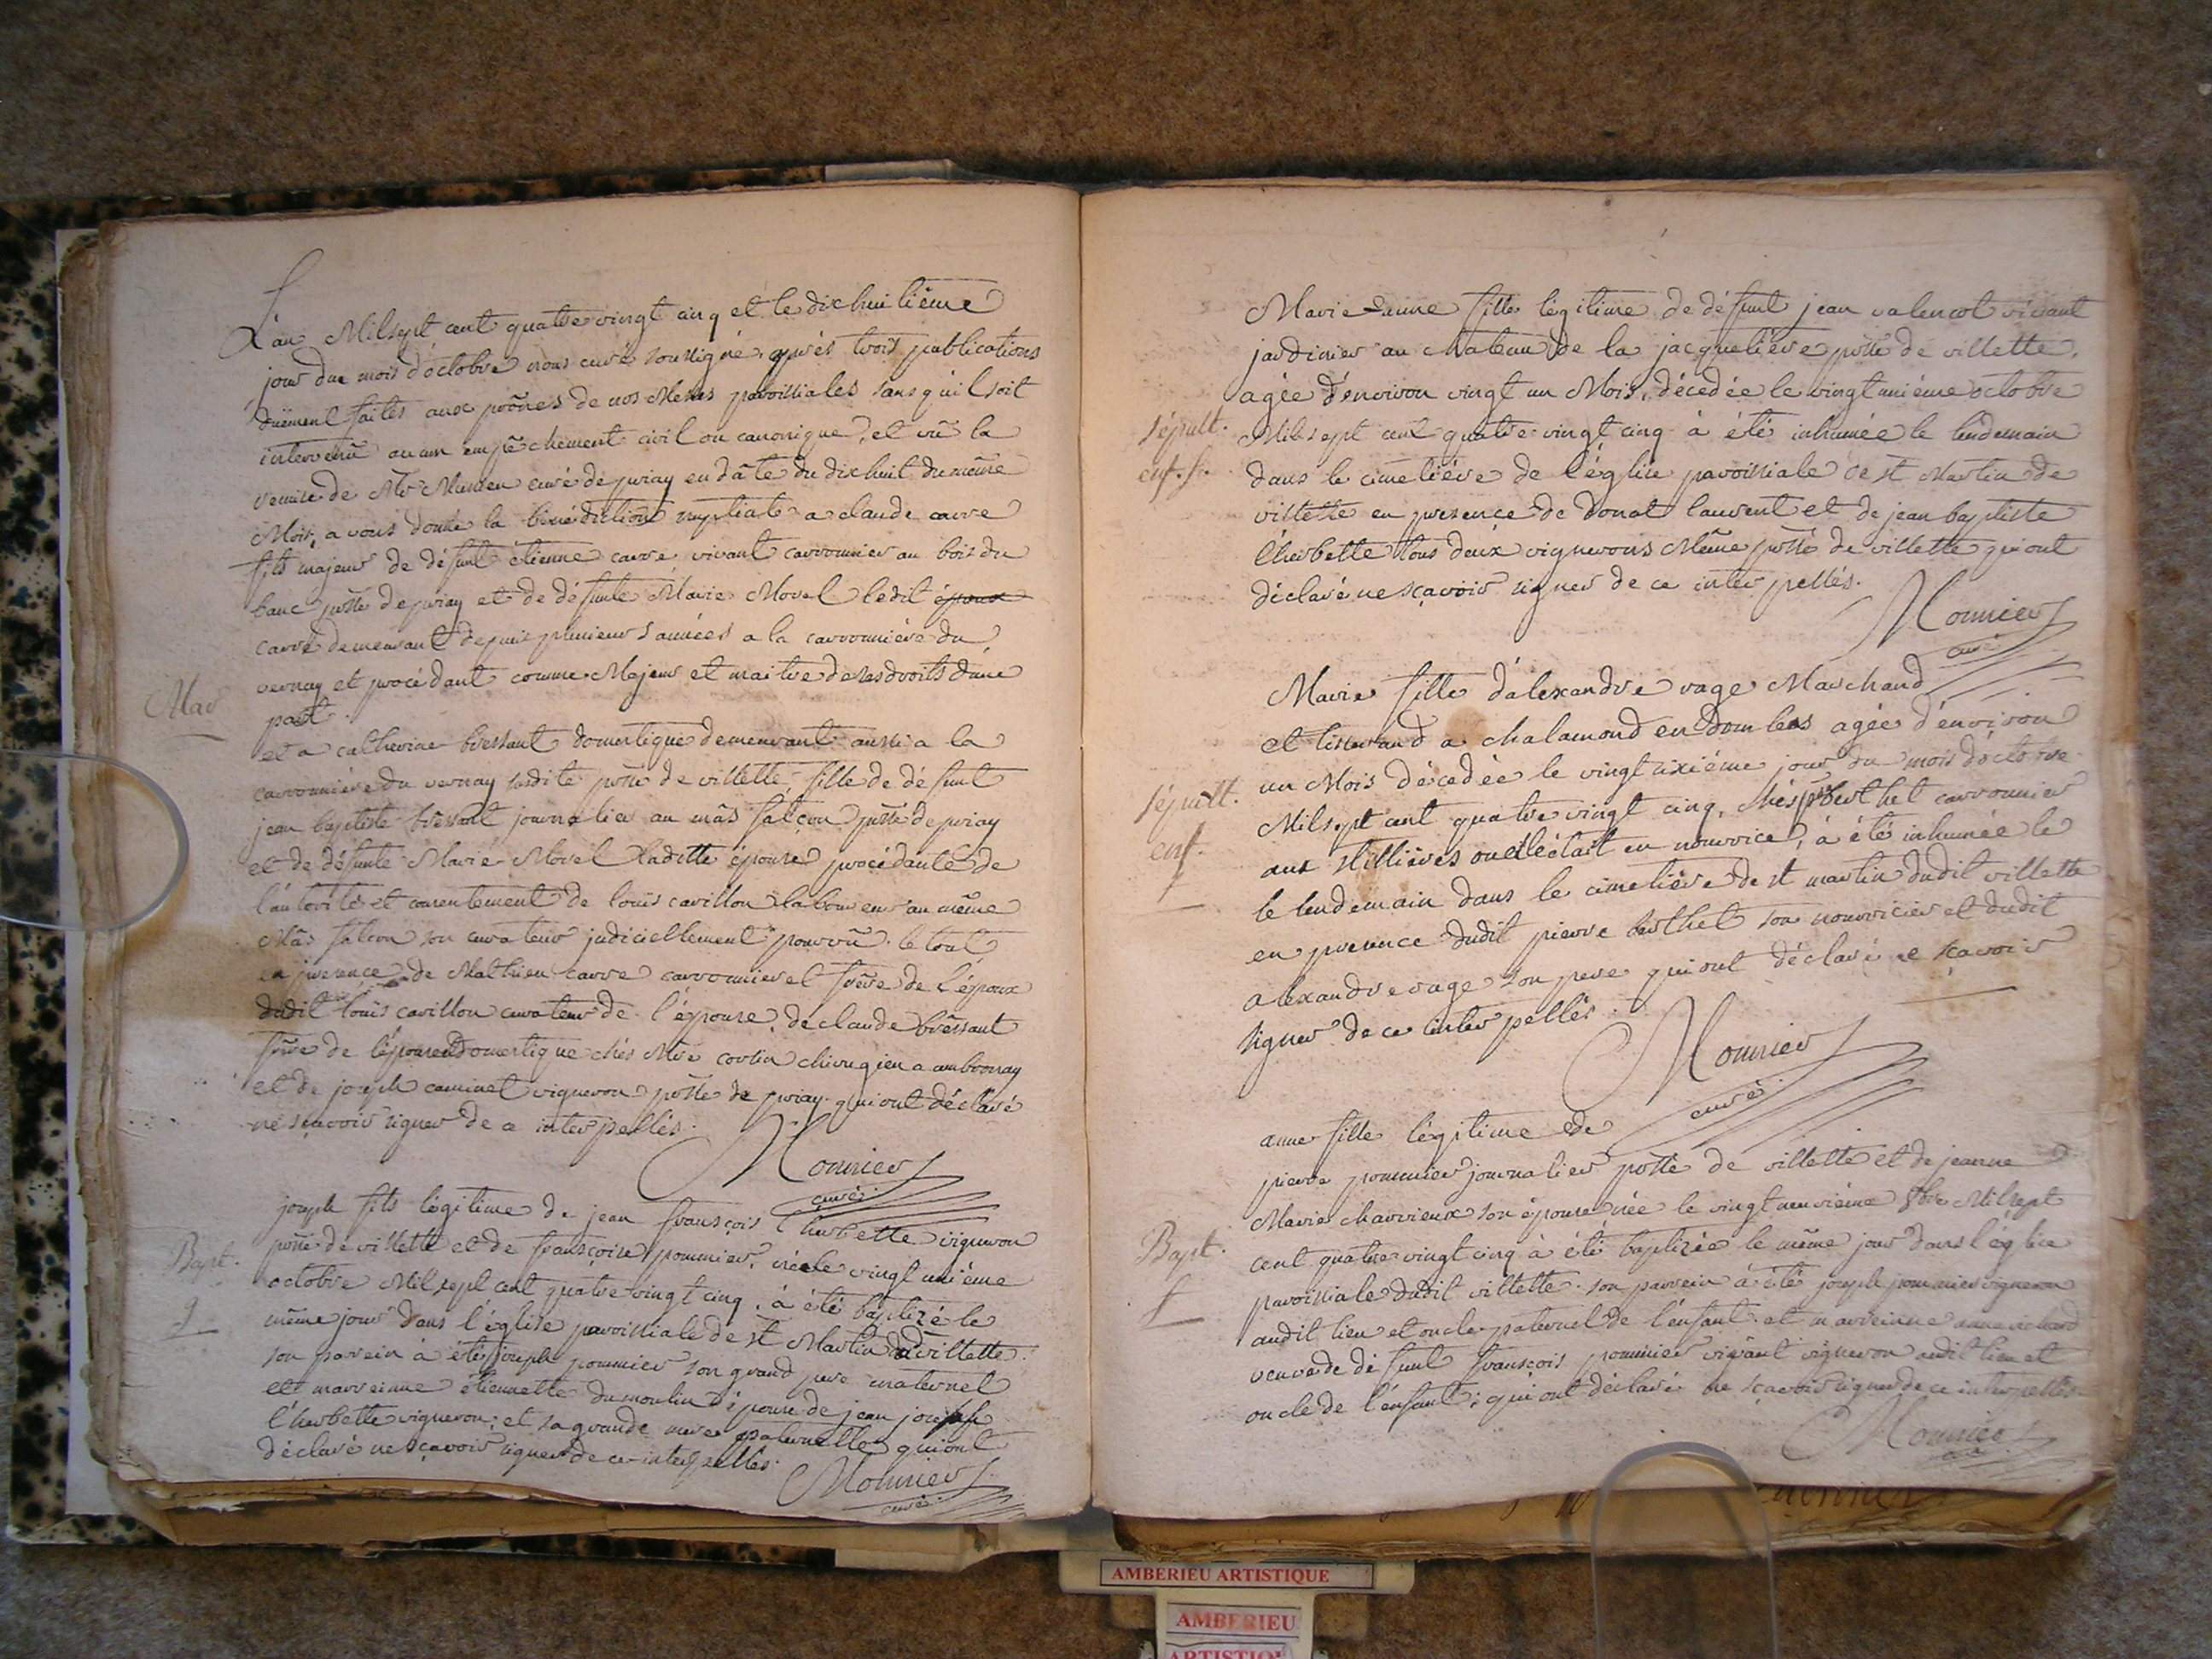 L'an Mil sept cent quatre vingt cinq et le dix huitième
jour du mois d'octobre nous curé soussigné, après trois publications
duëment faites aux prônes de nos Messes paroissiales sans qu'il soit
intervenû aucun empêchement civil ou canonique, et vû la
remise de Mr curé de priay en dâte du dix huit du même
Mois, avons donné la bénédiction nuptiale a claude carre
fils majeur de défunt étienne carre, vivant carronnier au bois du
banc psse de priay et de défunte Marie Morel ledit époux
carre demeurant depuis plusieurs années a la carronnière du
vernay et procédant comme Majeur et maitre de ses droits d'une
part.
Mar
et a catherine bressant domestique demeurant aussi a la
carronnière du vernay susdite psse de villette, fille de défunt
jean baptiste bressant journalier au mâs falcon psse de priay
et de défunte Marie Morel Laditte épouse procédante de
l'autorité et consentement de louis carillon laboureur au même
Mâs falcon son curateur judiciellement pourvû. le tout
en presence de Mathieu carre carronnier et frère de l'époux
dudit louis carillon curateur de l'épouse, de claude bressant
frère de l'épouse domestique chés Mre cortin chirugien a ambronay
et de joseph caminet vigneron psse de priay qui ont déclaré
ne sçavoir signer de ce interpellés.
Monnier
curé
joseph fils légitime de jean fransçois l'herbette vigneron
psse de villette et de fransçoise pommier, née le vingt unième
Bapt.
octobre Mil sept cent quatre vingt cinq, à été baptizé le
g
même jour dans l'église paroissiale de st Martin de villette.
son parrein à été joseph pommier son grand pere maternel
et marreinne étiennette dumoulin épouse de jean joseph
l'herbette vigneron, et sa grande mere paternelle qui ont
déclaré ne sçavoir signer de ce interpellés.
Monnier
curé
Marie anne fille légitime de défunt jean valencot vivant
jardinier au chateau de la jacquelière psse de villette,
agée d'environ vingt un Mois, décedée le vingt unième octobre
Sépult.
Mil sept cent quatre vingt cinq à été inhumée le lendemain
enf. f.
dans le cimetière de l'église paroissiale de st Martin de
villette en presence de Donat laurent et de jean baptiste
l'herbette tous deux vignerons Même psse de villette qui ont
déclaré ne sçavoir signer de ce interpellés.
Monnier
curé
Marie fille d'alexandre vage Marchand
et tisserand a chalamond en Dombes agée d'environ
un Mois décedée le vingt sixième jour du mois d'octobre
Sépult.
Mil sept cent quatre vingt cinq, chés pre berthet carronnier
enf.
aux tillières ou elle était en nourrice, à été inhumée le
f
le lendemain dans le cimetière de st martin dudit villette
en presence dudit pierre berthet son nourricier et dudit
alexandre vage son pere qui ont déclaré ne sçavoir
signer de ce interpellés.
Monnier
curé
anne fille légitime de
pierre pommier journalier psse de villette et de jeanne
Marie charvieux son épouse née le vingt neuvième 8bre Mil sept
Bapt.
cent quatre vingt cinq à été baptizée le même jour dans l'église
f
paroissiale dudit villette. son parrein à été joseph pommier vigneron
audit lieu et oncle paternel de l'enfant et marreinne anne
veuve de défunt fransçois pommier vivant vigneron audit lieu et
oncle de l'enfant; qui ont déclaré ne sçavoir signer de ce interpellés
Monnier
curé
AMBERIEU ARTISTIQUE
AMBERIEU
ARTISTIQUE